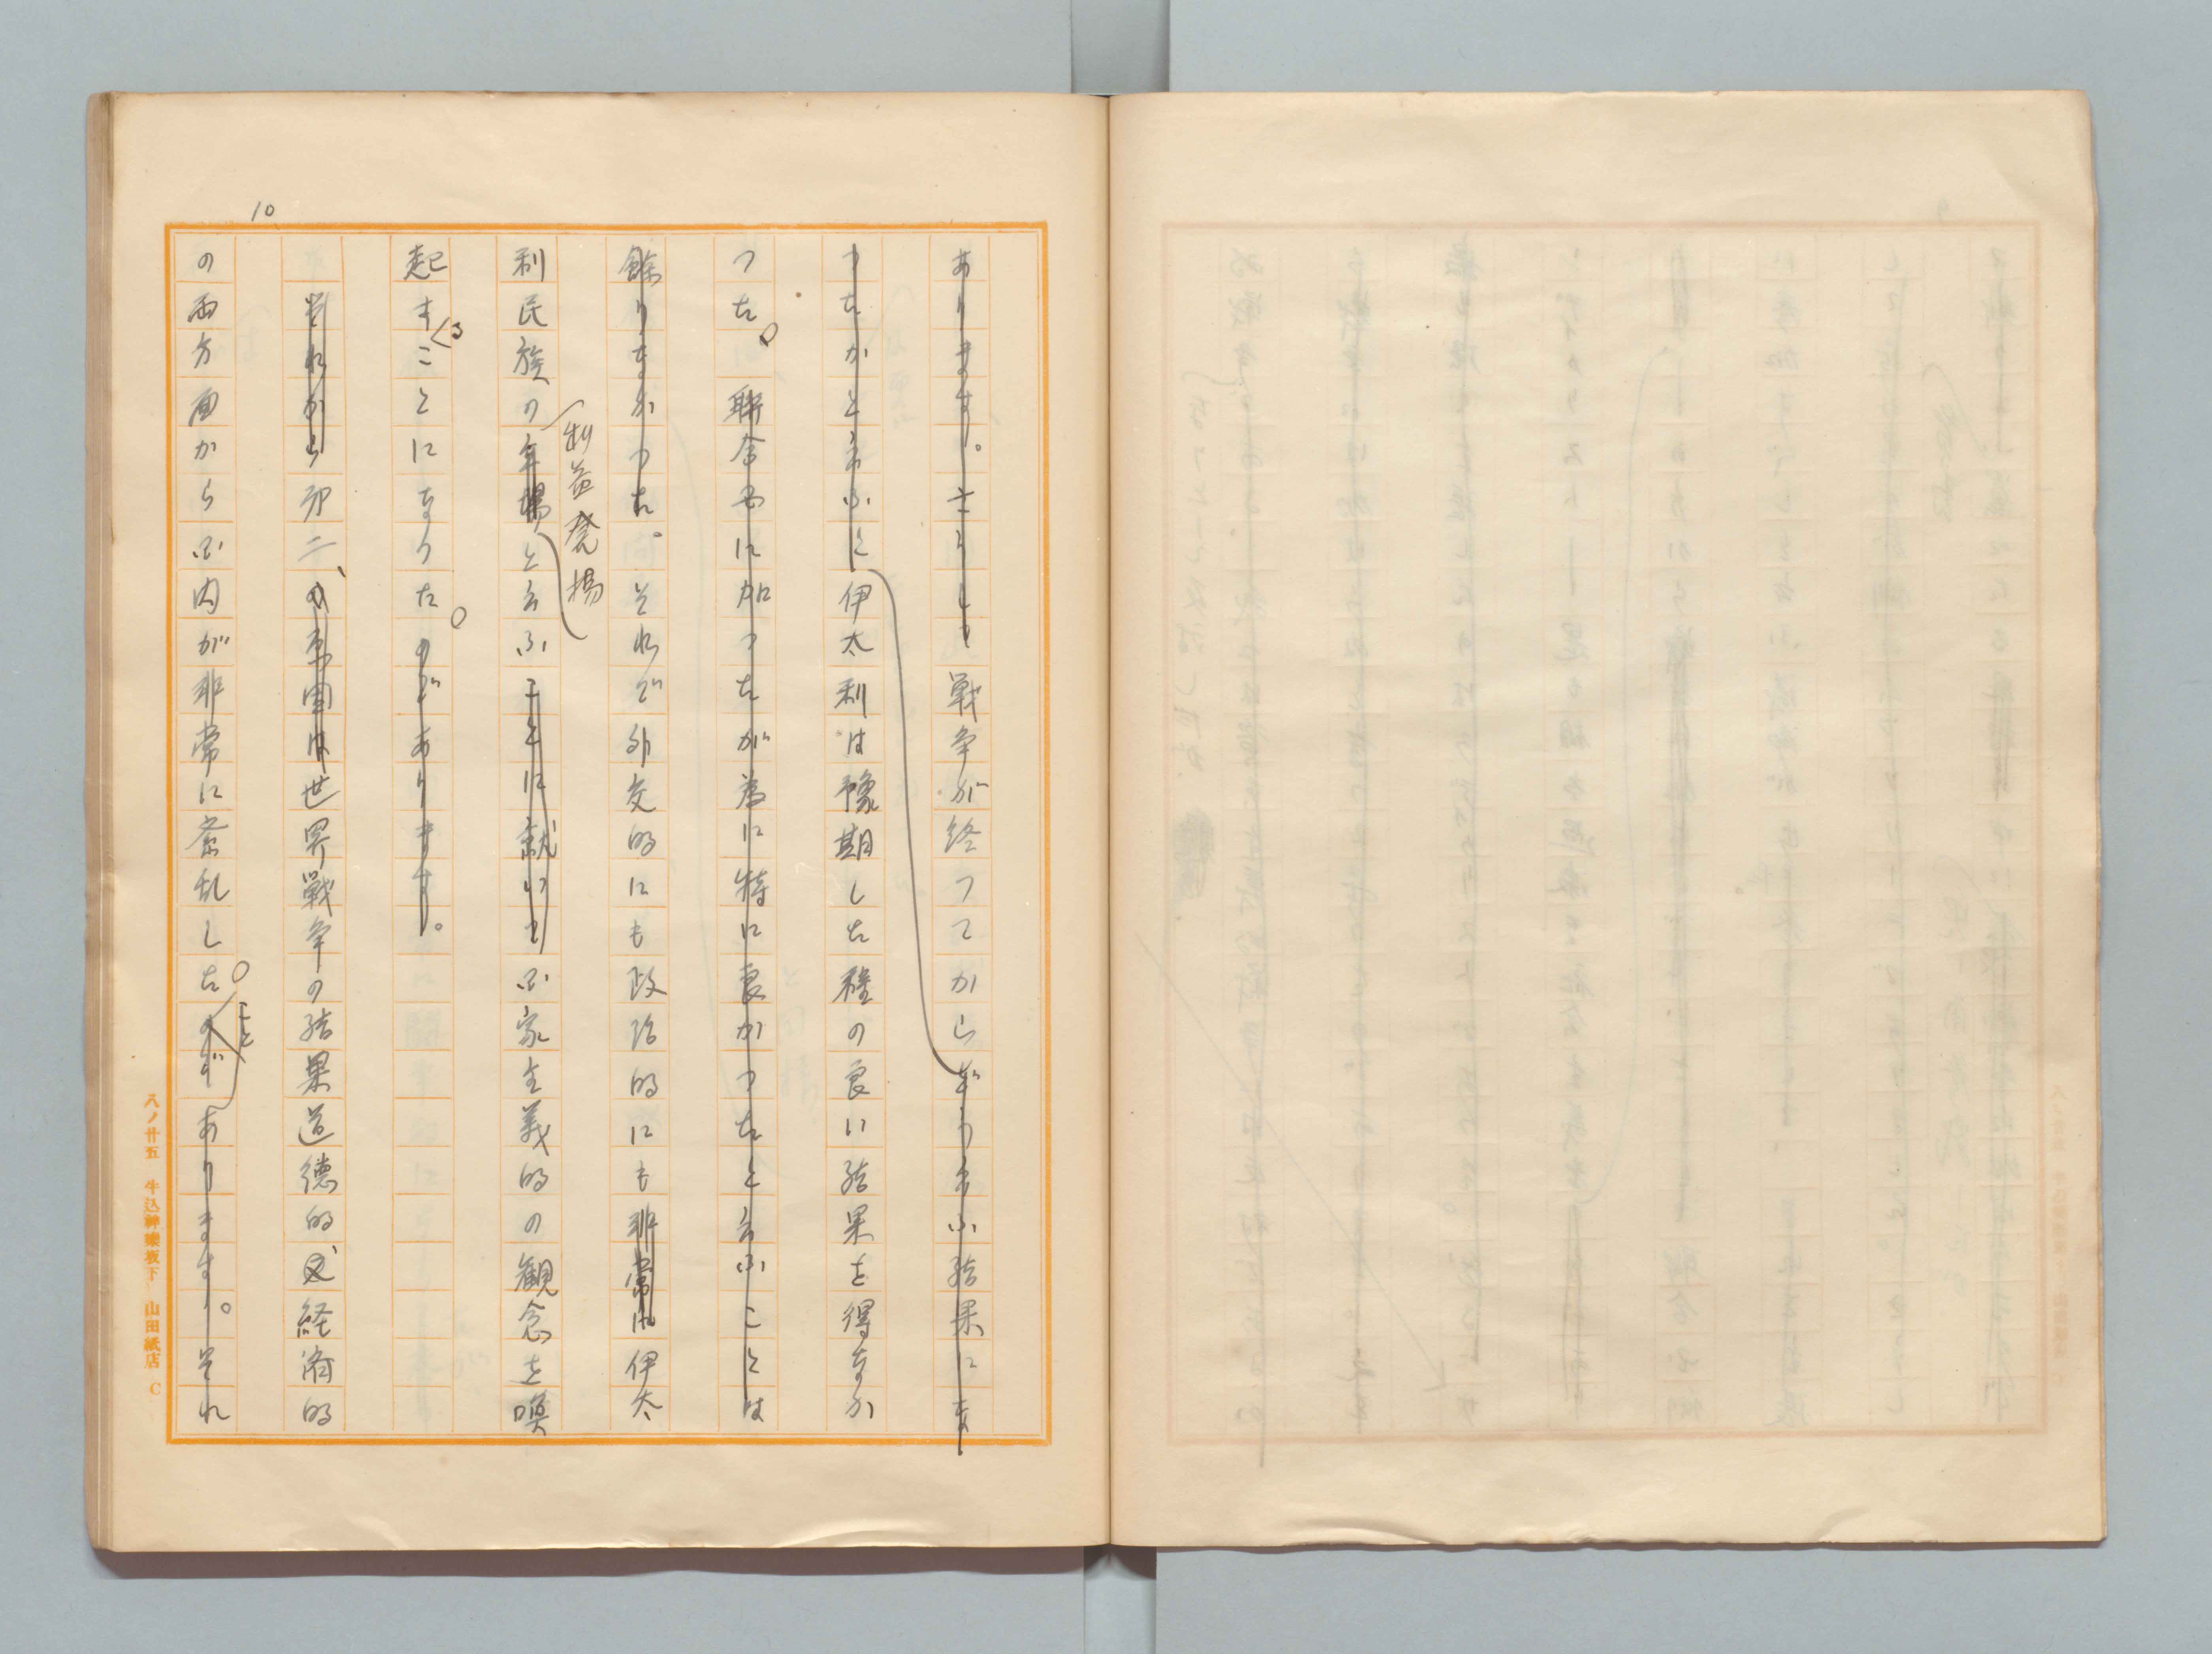 10
あります。さうして戦争が終つてからどう云ふ結果にな
つたかと云ふと伊太利は豫期した程の良い結果を得なか
つた。聯合国に加つたが為に特に良かつたと云ふことは
餘りなかつた。それで外交的にも政治的にも非常に伊太
利益発揚
利民族の年揚と云ふことに就いても国家主義的の観念を喚
る
起すことになつた。のであります。
それから第二、の原因は世界戦争の結果道徳的又経済的
こと
の両方面から国内が非常に紊乱した。のであります。それ
八ノ廿五 牛込神樂坂下 山田紙店 C